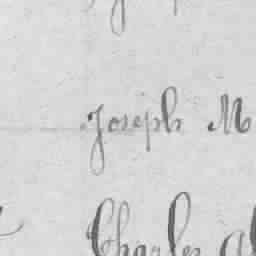 Joseph M
Charles